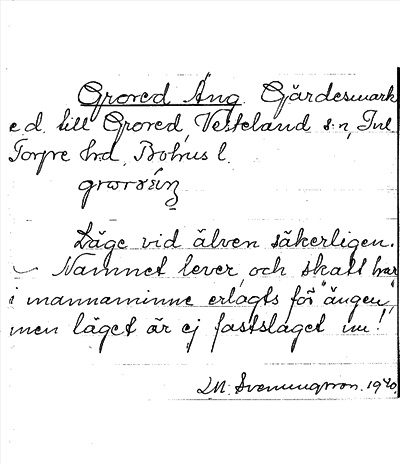 Grored Äng. Gärdesmark
e.d. till Grored, Vesteland s:n, Inl.
Torpe hrd, Bohus l.
Läge vid älven säkerligen.
– Namnet lever, och skatt har
i mannaminne erlagts för "ängen",
men läget är ej fastslaget nu!
LM. Svenungsson. 1940.